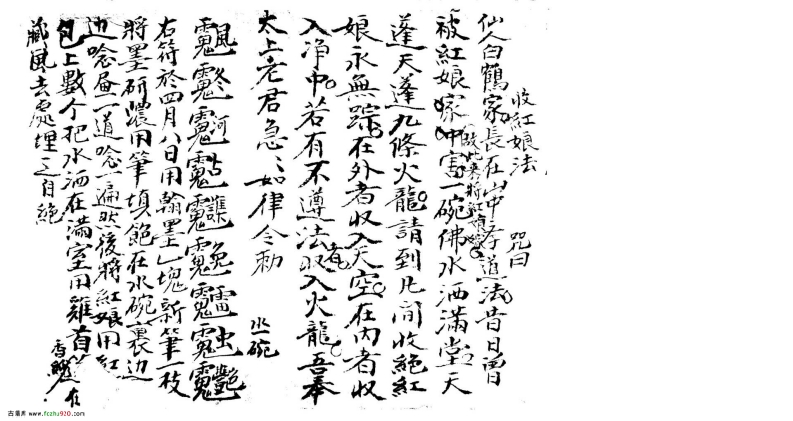 收紅娘法 咒曰
仙人白鶴家長在山中孝道法昔日曽
被紅娘家冲害一碗佛水洒滿堂天
故此來將紅娘
蓬天蓬九條火龍請到凡間收絕紅
娘永無踪在外者收入天空在內者收
入净中若有不遵法者收入火龍吾奉
太上老君急〻如律令勅 水碗
右符於四月八日用翰墨一塊新筆一枝
將墨研濃用筆填飽在水碗裏边
边唸畫一道唸一遍然後將紅娘用紅
包上數个把水洒在滿室用雞首
藏風去處埋之自絕
古籍库 www.fczhu920.com